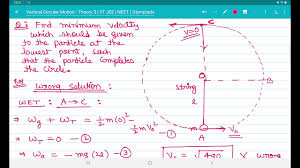 Vertical Circular Motion - Theory 3 | IIT JEE | NEET | Olympiads
Q: Find minimum velocity
which should be given
to the particle at the
lowest point, such
that the particle completes
the circle.
Sol wrong solution:
WET: A→C:
⇒ Wg + WT = ½m(0)² - ½mV₀² -①
⇒ WT = 0 -②
⇒ Wg = -mg(2l) -③
C
V=0
B
O
string
l
m
A
V₀
V₀ = √4gl
x wrong